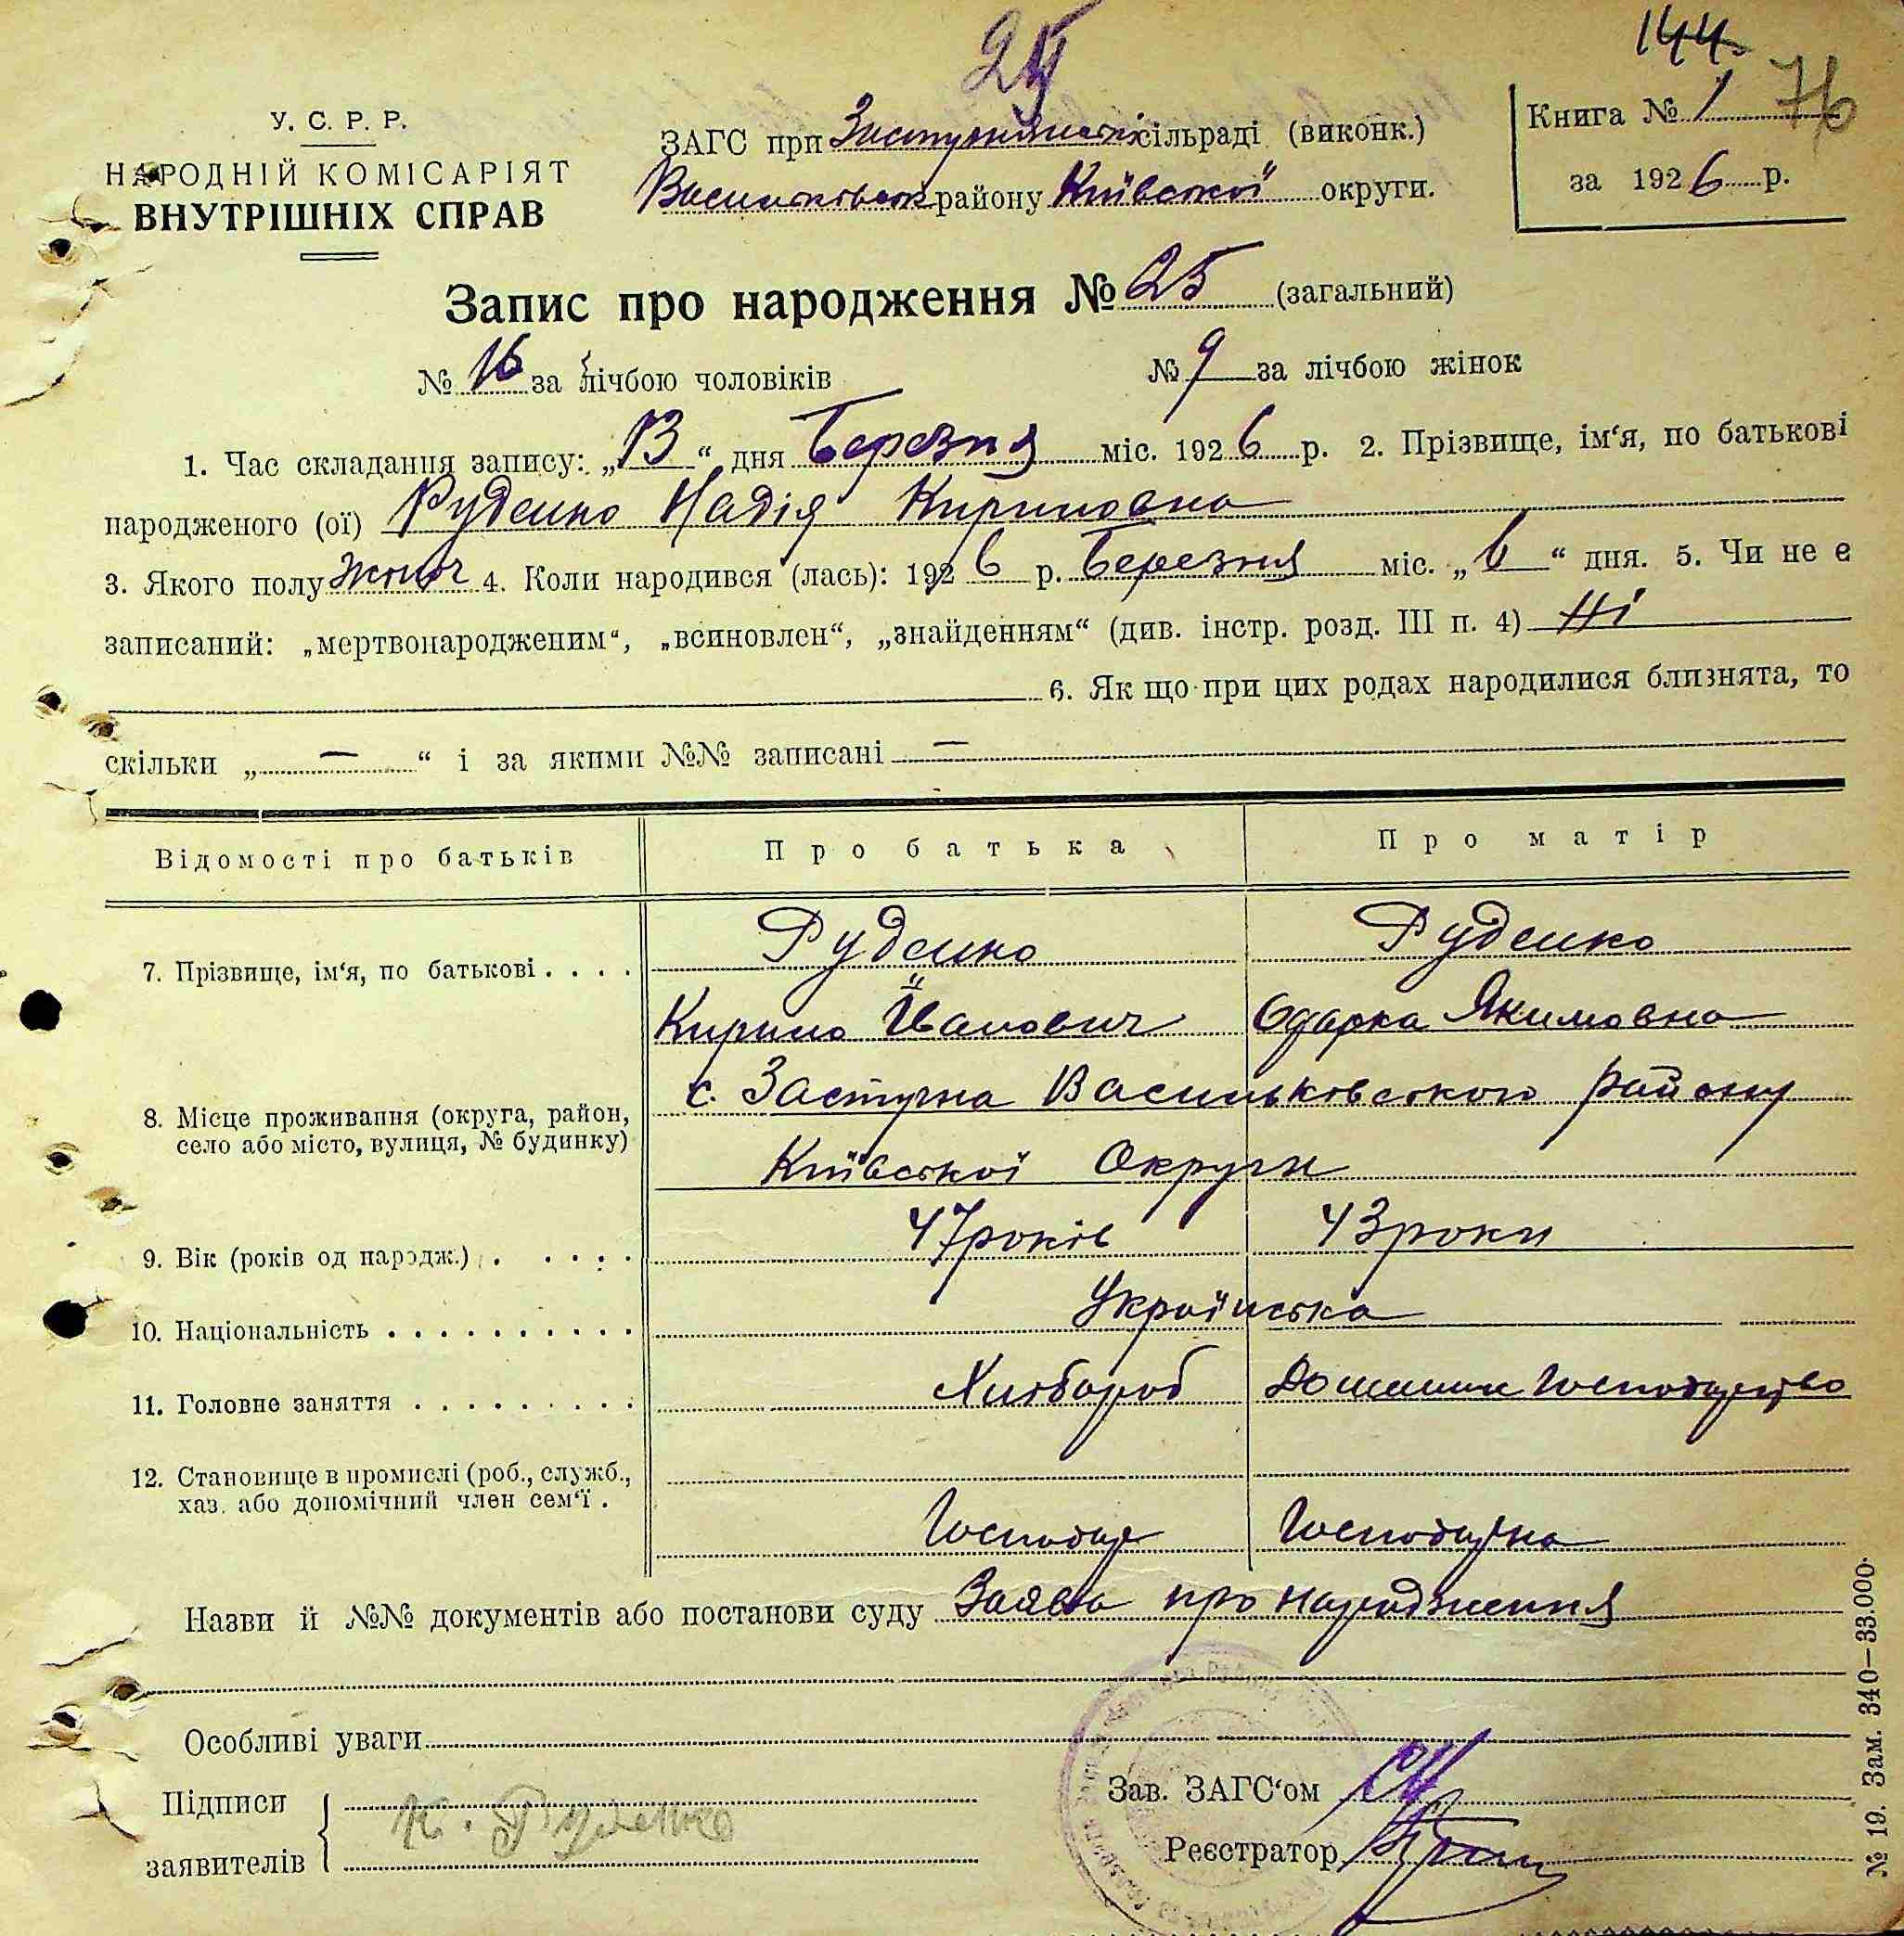 144.
25 76
У. С. Р. Р.
НАРОДНІЙ КОМІСАРІЯТ
ВНУТРІШНІХ СПРАВ
ЗАГС при сільраді (виконк.)
Васильківськ району Київської округи.
Книга № 1
за 1926 р.
Запис про народження № 25 (загальний)
№ 16 за лічбою чоловіків № 9 за лічбою жінок
1. Час складання запису: „13“ дня Березня міс. 1926 р. 2. Прізвище, ім‘я, по батькові
народженого (ої) Руденко Надія Кириловна
3. Якого полу жіноч 4. Коли народився (лась): 1926 р. Березня міс. „6“ дня. 5. Чи не є
записаний: „мертвонародженим“, „всиновлен“, „знайденням“ (див. інстр. розд. III п. 4) Ні
6. Як що при цих родах народилися близнята, то
скільки „ — “ і за якими №№ записані —
Відомості про батьків Про батька Про матір
7. Прізвище, ім‘я, по батькові . . . . Руденко Руденко
Кирило Йванович Одарка Якимовна
8. Місце проживання (округа, район, село або місто, вулиця, № будинку) с. Застугна Васильковського району
Київської Округи
9. Вік (років од народж.) . . . . . 47 років 43 роки
10. Національність . . . . . . . . . . Українська
11. Головне заняття . . . . . . . . . Хлібороб Домашнє Господарство
12. Становище в промислі (роб., служб.,
хаз. або допомічний член сем‘ї .
Господар Господарка
Назви й №№ документів або постанови суду Заява про народження
Особливі уваги
Підписи
заявителів
К. Руденко
Зав. ЗАГС‘ом
Реєстратор
№ 19. Зам. 340—33.000.